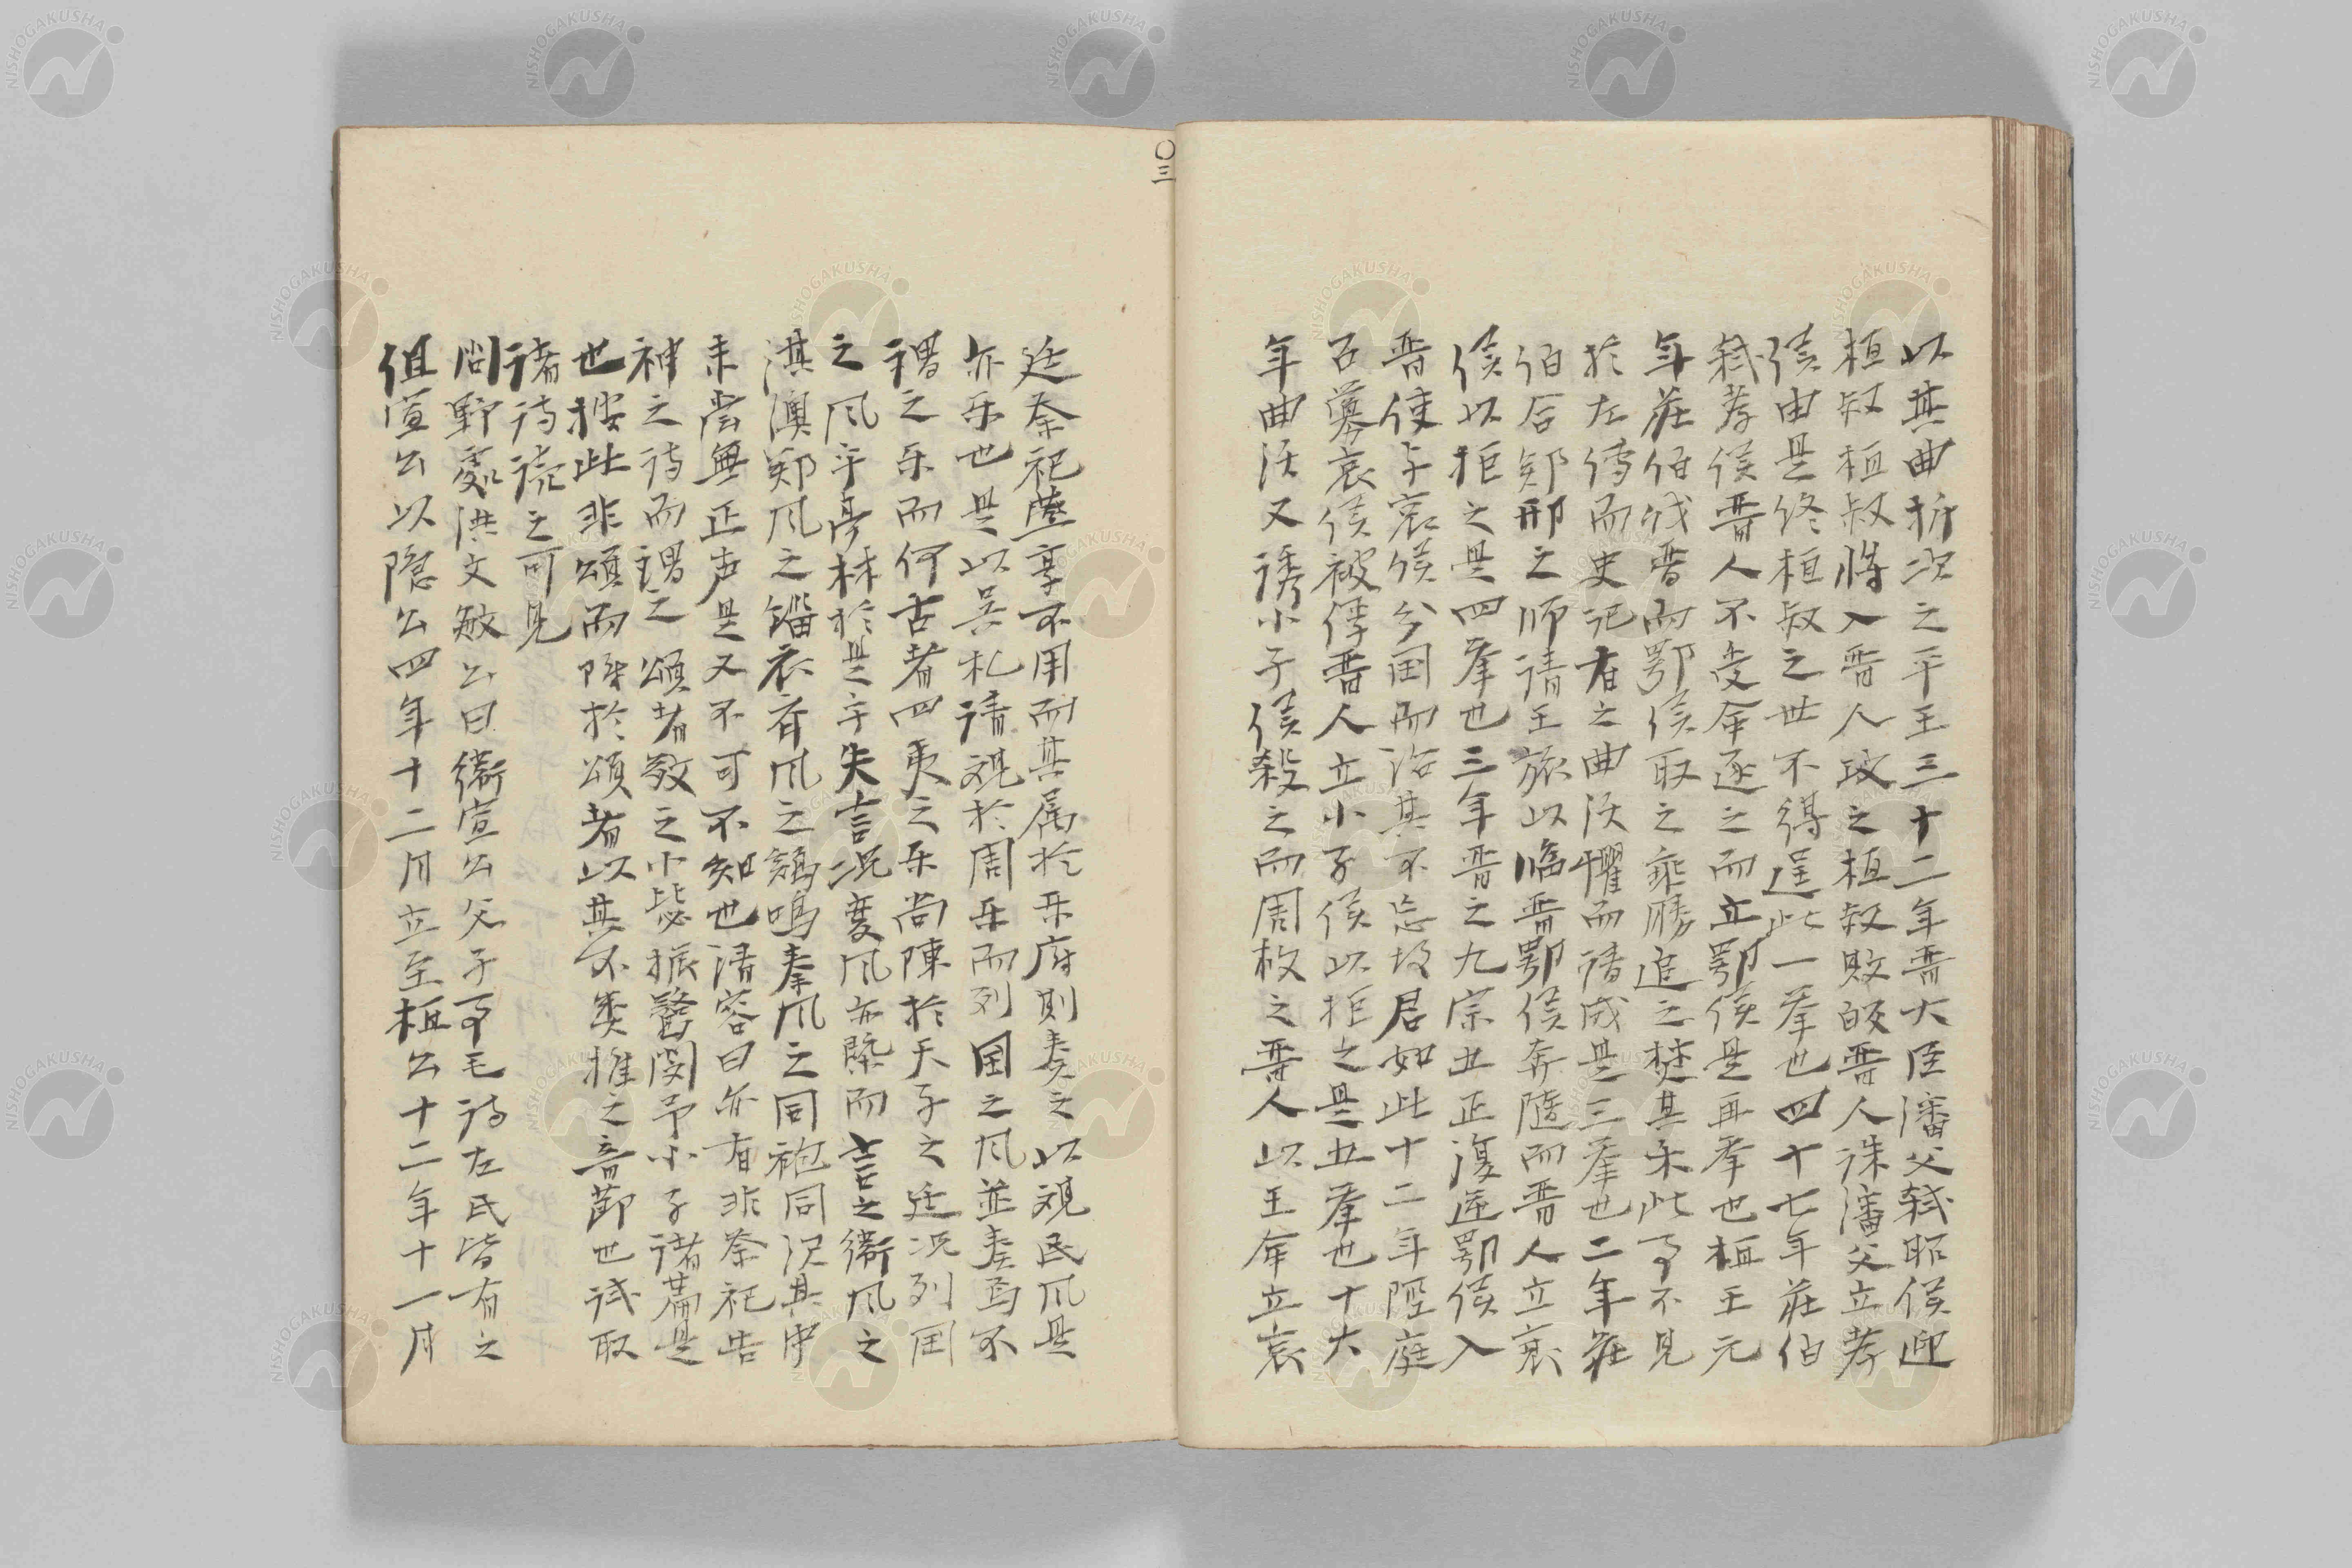 以其曲折次之平王三十二年晋大臣潘父弑昭侯迎
桓叔桓叔將入晋人攻之桓叔敗敀晋人誅潘父立孝
侯由是終桓叔之世不得逞此一挙也四十七年莊伯
弑孝侯晋人不受命逐之而立鄂侯是再挙也桓王元
年莊伯伐晋而鄂侯敗之乘勝追之焚其禾此事不見
於左傳而史記有之曲沃懼而請成是三挙也二年莊
伯合鄭邢之師請王旅以臨晋鄂侯奔隨而晋人立哀
侯以拒之是四挙也三年晋之九宗五正復逆鄂侯入
晋使与哀侯分国而治其不忘故君如此十二年陘庭
召釁哀侯被俘晋人立小子侯以拒之是五挙也十六
年曲沃又誘小子侯殺之而周救之晋人以王命立哀
〇三
廷奈祀燕享不用而其属於乐府則奏之以観民風是
亦乐也是以吴札請観於周乐而列国之風並奏焉不
謂之乐而何古者四夷之乐尚陳於天子之廷况列国
之風乎亭林於是乎失言况変風亦槩而言之衞風之
淇澳鄭風之緇衣斉風之鶏鳴秦風之同袍同沢其中
未嘗無正声是又不可不知也清容曰亦有非祭祀告
神之诗而謂之頌者敬之小毖振鷺閔予小子諸篇是
也按此非頌而陳於頌者以其不类推之音節也試取
诸诗読之可見
問野處洪文敏公曰衞宣公父子事毛诗左氏皆有之
但宣公以隐公四年十二月立至桓公十二年十一月